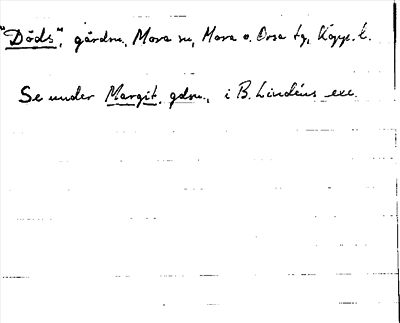 "Döds", gårdsn., Mora sn, Mora o. Orsa tg, Kopp. l.
Se under Margit, gdsn., i B. Lindéns exc.